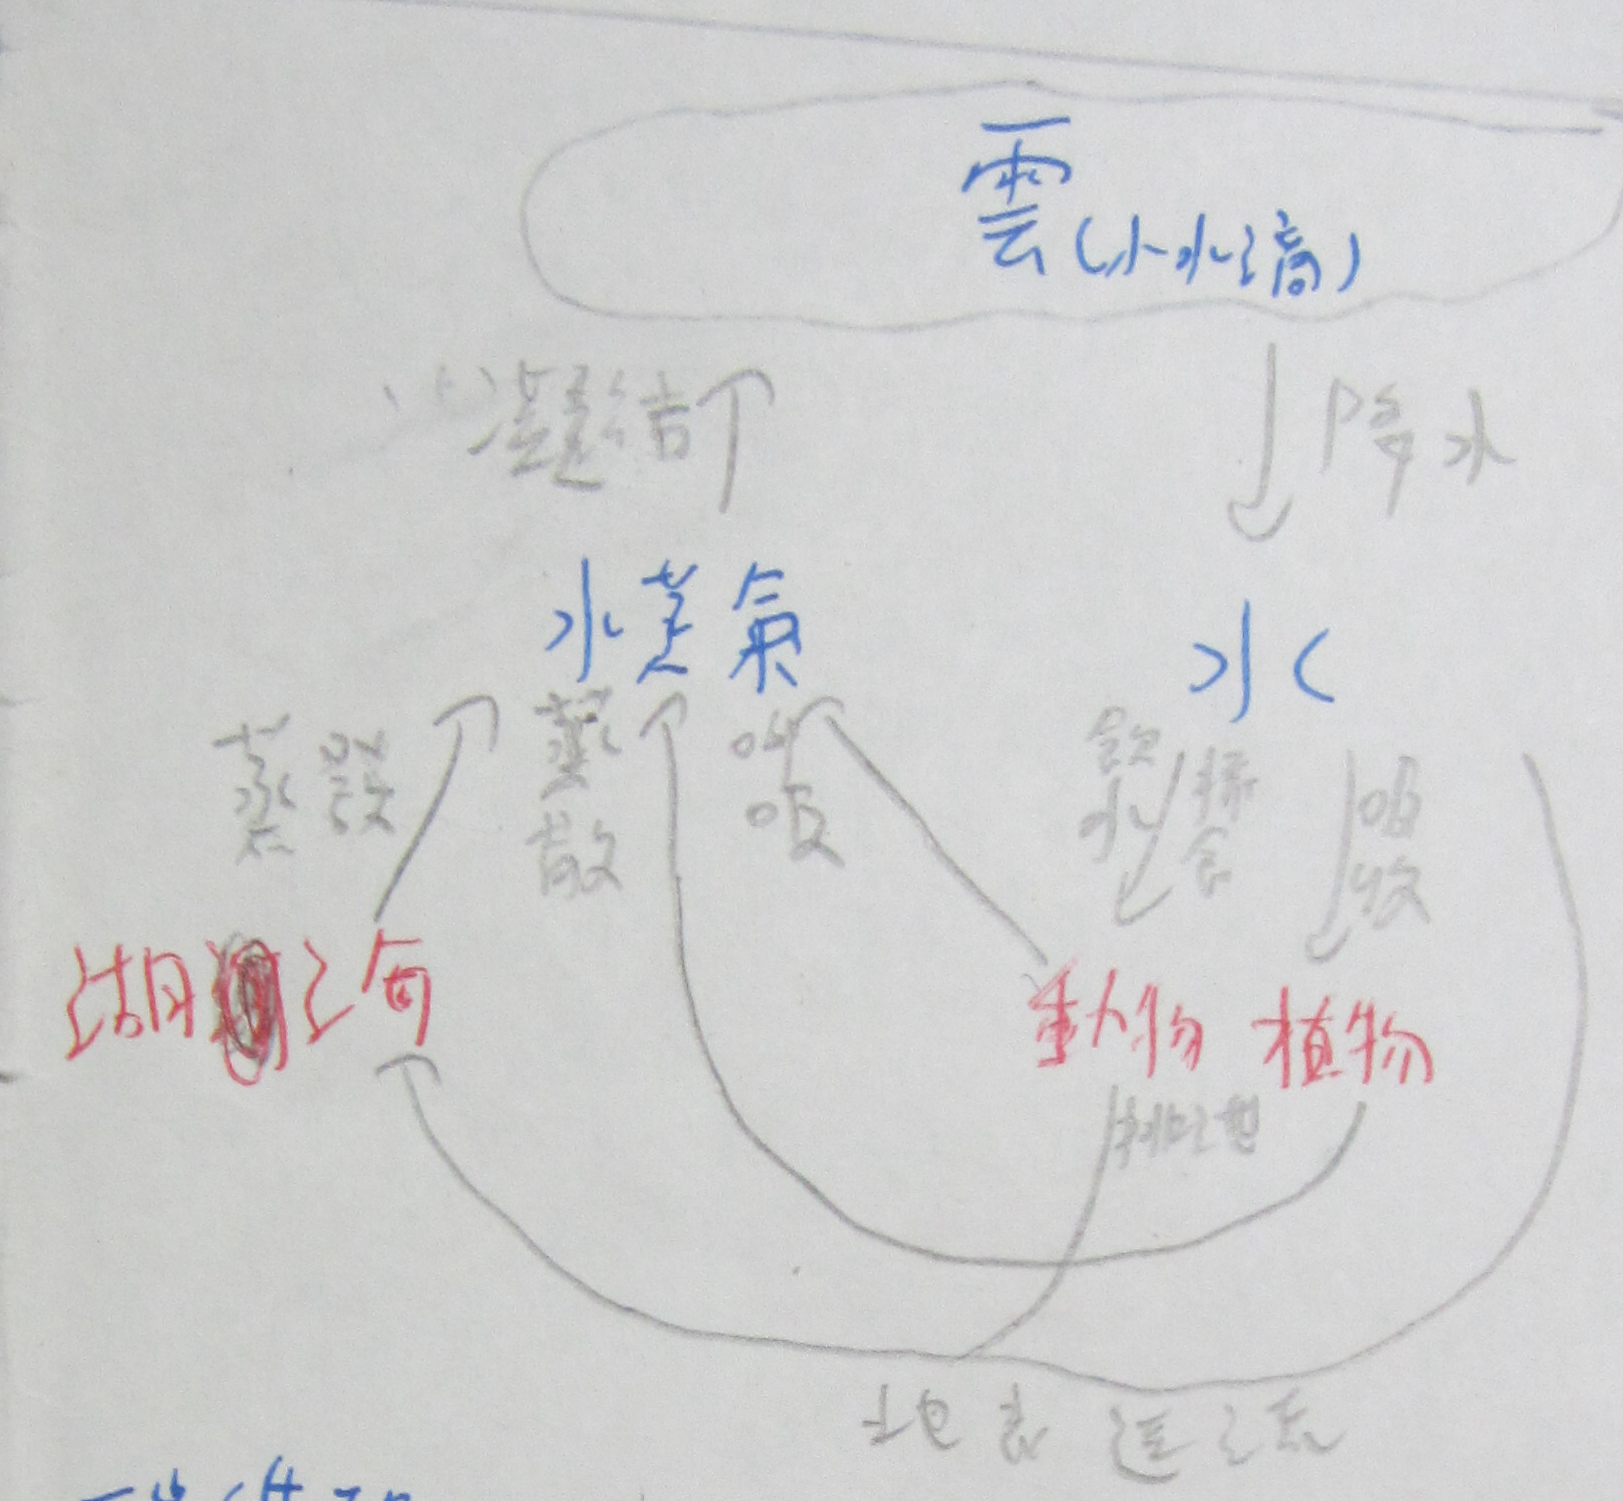 雲(小水滴)
凝結
降水
水蒸氣
水
蒸發
蒸散
呼吸
飲水
擇食
吸收
湖海
動物 植物
排泄
地表逕流